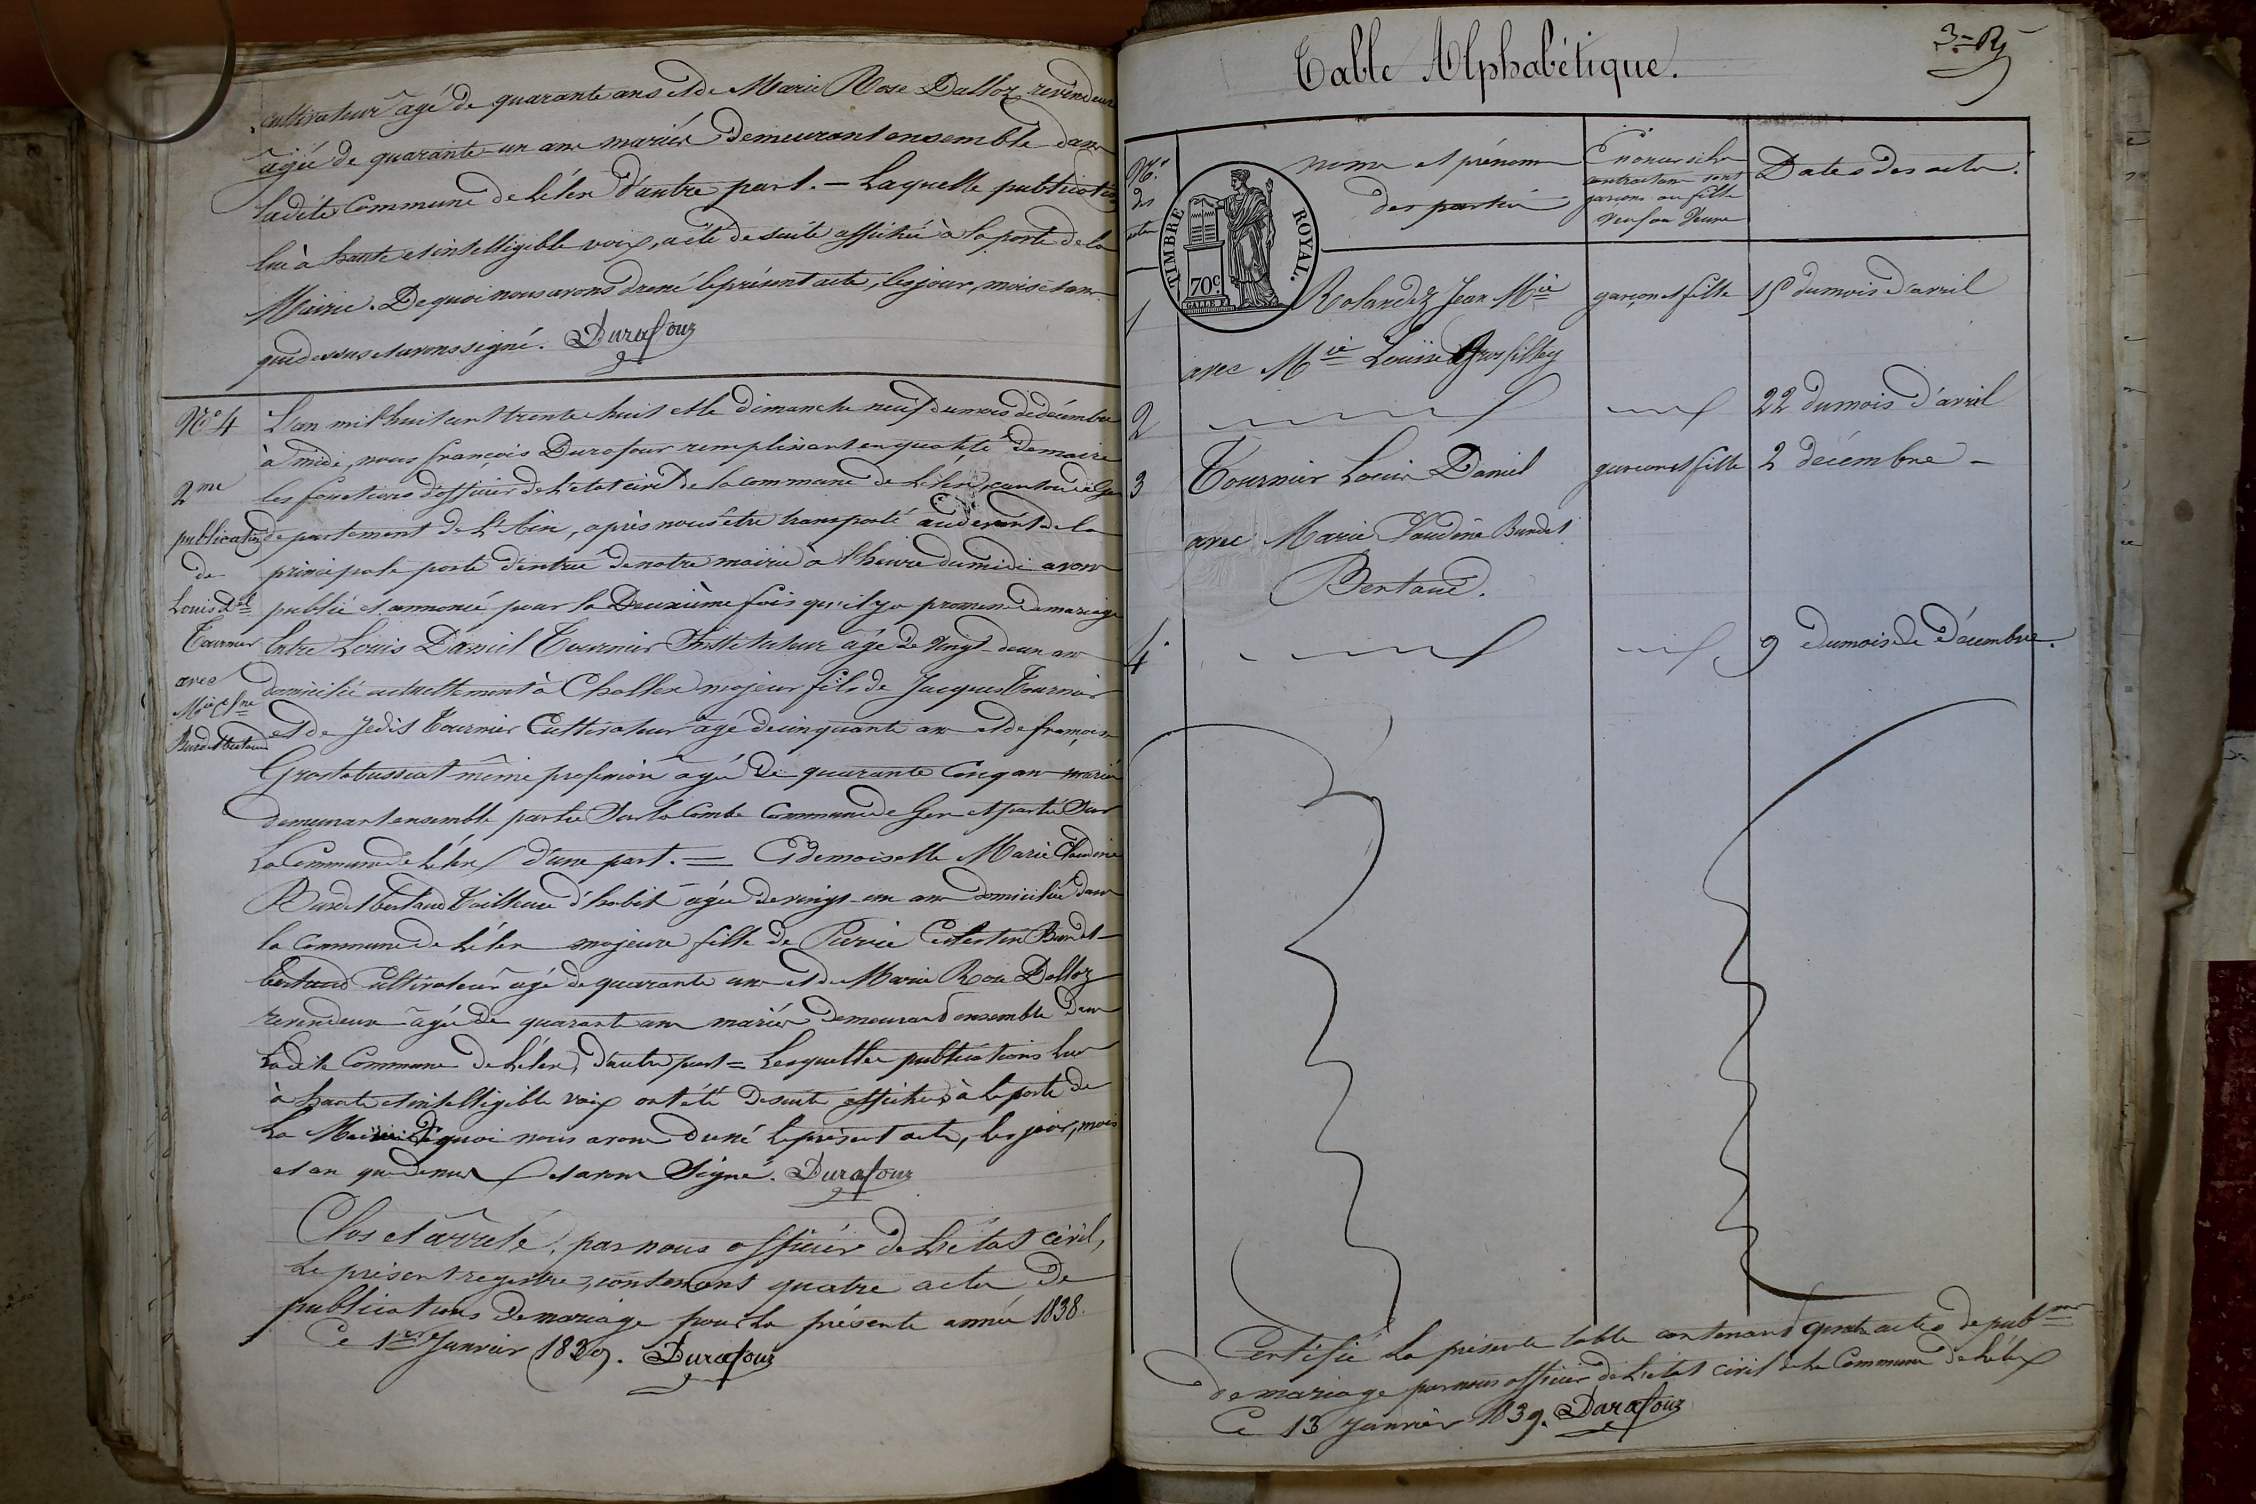 cultivateur agé de quarante ans et de Marie Rose Dalloz revendeuse
agée de quarante-un ans mariés demeurant ensemble dans
ladite Commune de Lélex d'autre part. — Laquelle publication
lue à haute et intelligible voix, a été de suite affichée à la porte de la
Mairie. De quoi nous avons dressé le présent acte, les jour, mois et an
que dessus et avons signé. Durafour
N° 4
2me
publication
de
Louis Del
Tournier
avec
Mie Cine
Burdet Bertaud
L'an mil huit cent trente huit et le dimanche neuf du mois de décembre
à midi, nous françois Durafour remplissant en qualité de maire
les fonctions d'officier de l'etat civil de la commune de Lélex, canton de Gex
departement de L'Ain, après nous être transporté au devant de la
principale porte d'entrée de notre mairie à l'heure de midi avons
publié et annoncé pour la Deuxième fois qu'il y a promesse de mariage
Entre Louis Daniel Tournier Instituteur agé de vingt-deux ans
domicilié actuellement à Challex majeur fils de Jacques Tournier
et de Jedis Tournier Cultivateur agé de cinquante ans et de françoise
même profession agée de quarante cinq ans mariés
demeurant ensemble partie Sur la Combe Commune de Gex et partie Sur
La Commune de Lélex d'une part. = Et demoiselle Marie Claudine
Burdet bertaud Tailleuse d'habit agée de vingt-un ans domiciliée dans
la Commune de Lélex majeure fille de Pierre Célestin Burdet
bertaud cultivateur agé de quarante ans et de Marie Rose Dalloz
revendeuse agée de quarante ans mariés demeurant ensemble dans
Ladite Commune de Lélex, d'autre part = Lesquelles publications lues
à haute et intelligible voix ont été de suite affichées à la porte de
La Mairie De quoi nous avons dressé le présent acte, les jour, mois
et an que dessus et avons Signé. Durafour
Clos et arrêté, par nous officier de L'état civil,
Le présent registre, contenant quatre actes De
publications De mariage pour La présente année 1838.
Ce 1er Janvier 1839. Durafour
Table Alphabétique.
Nos
des
actes
noms et prénoms
des parties
contractans sont
garçons ou fille
Veuf ou Veuve
Dates des actes.
TIMBRE ROYAL.
70c.
1
Rolandez Jean Mie
garçon et fille
15 du mois d'avril
avec Mie Louise Grosfilley
2
22 du mois d'avril
3
Tournier Louis Daniel
garçon et fille
2 décembre —
avec Marie Claudine Burdet
Bertaud.
4
9 du mois de Décembre.
Certifié la présente table contenant quatre actes de pubons
de mariage par nous officier de L'état civil de la Commune de Lélex
Ce 13 Janvier 1839. Durafour